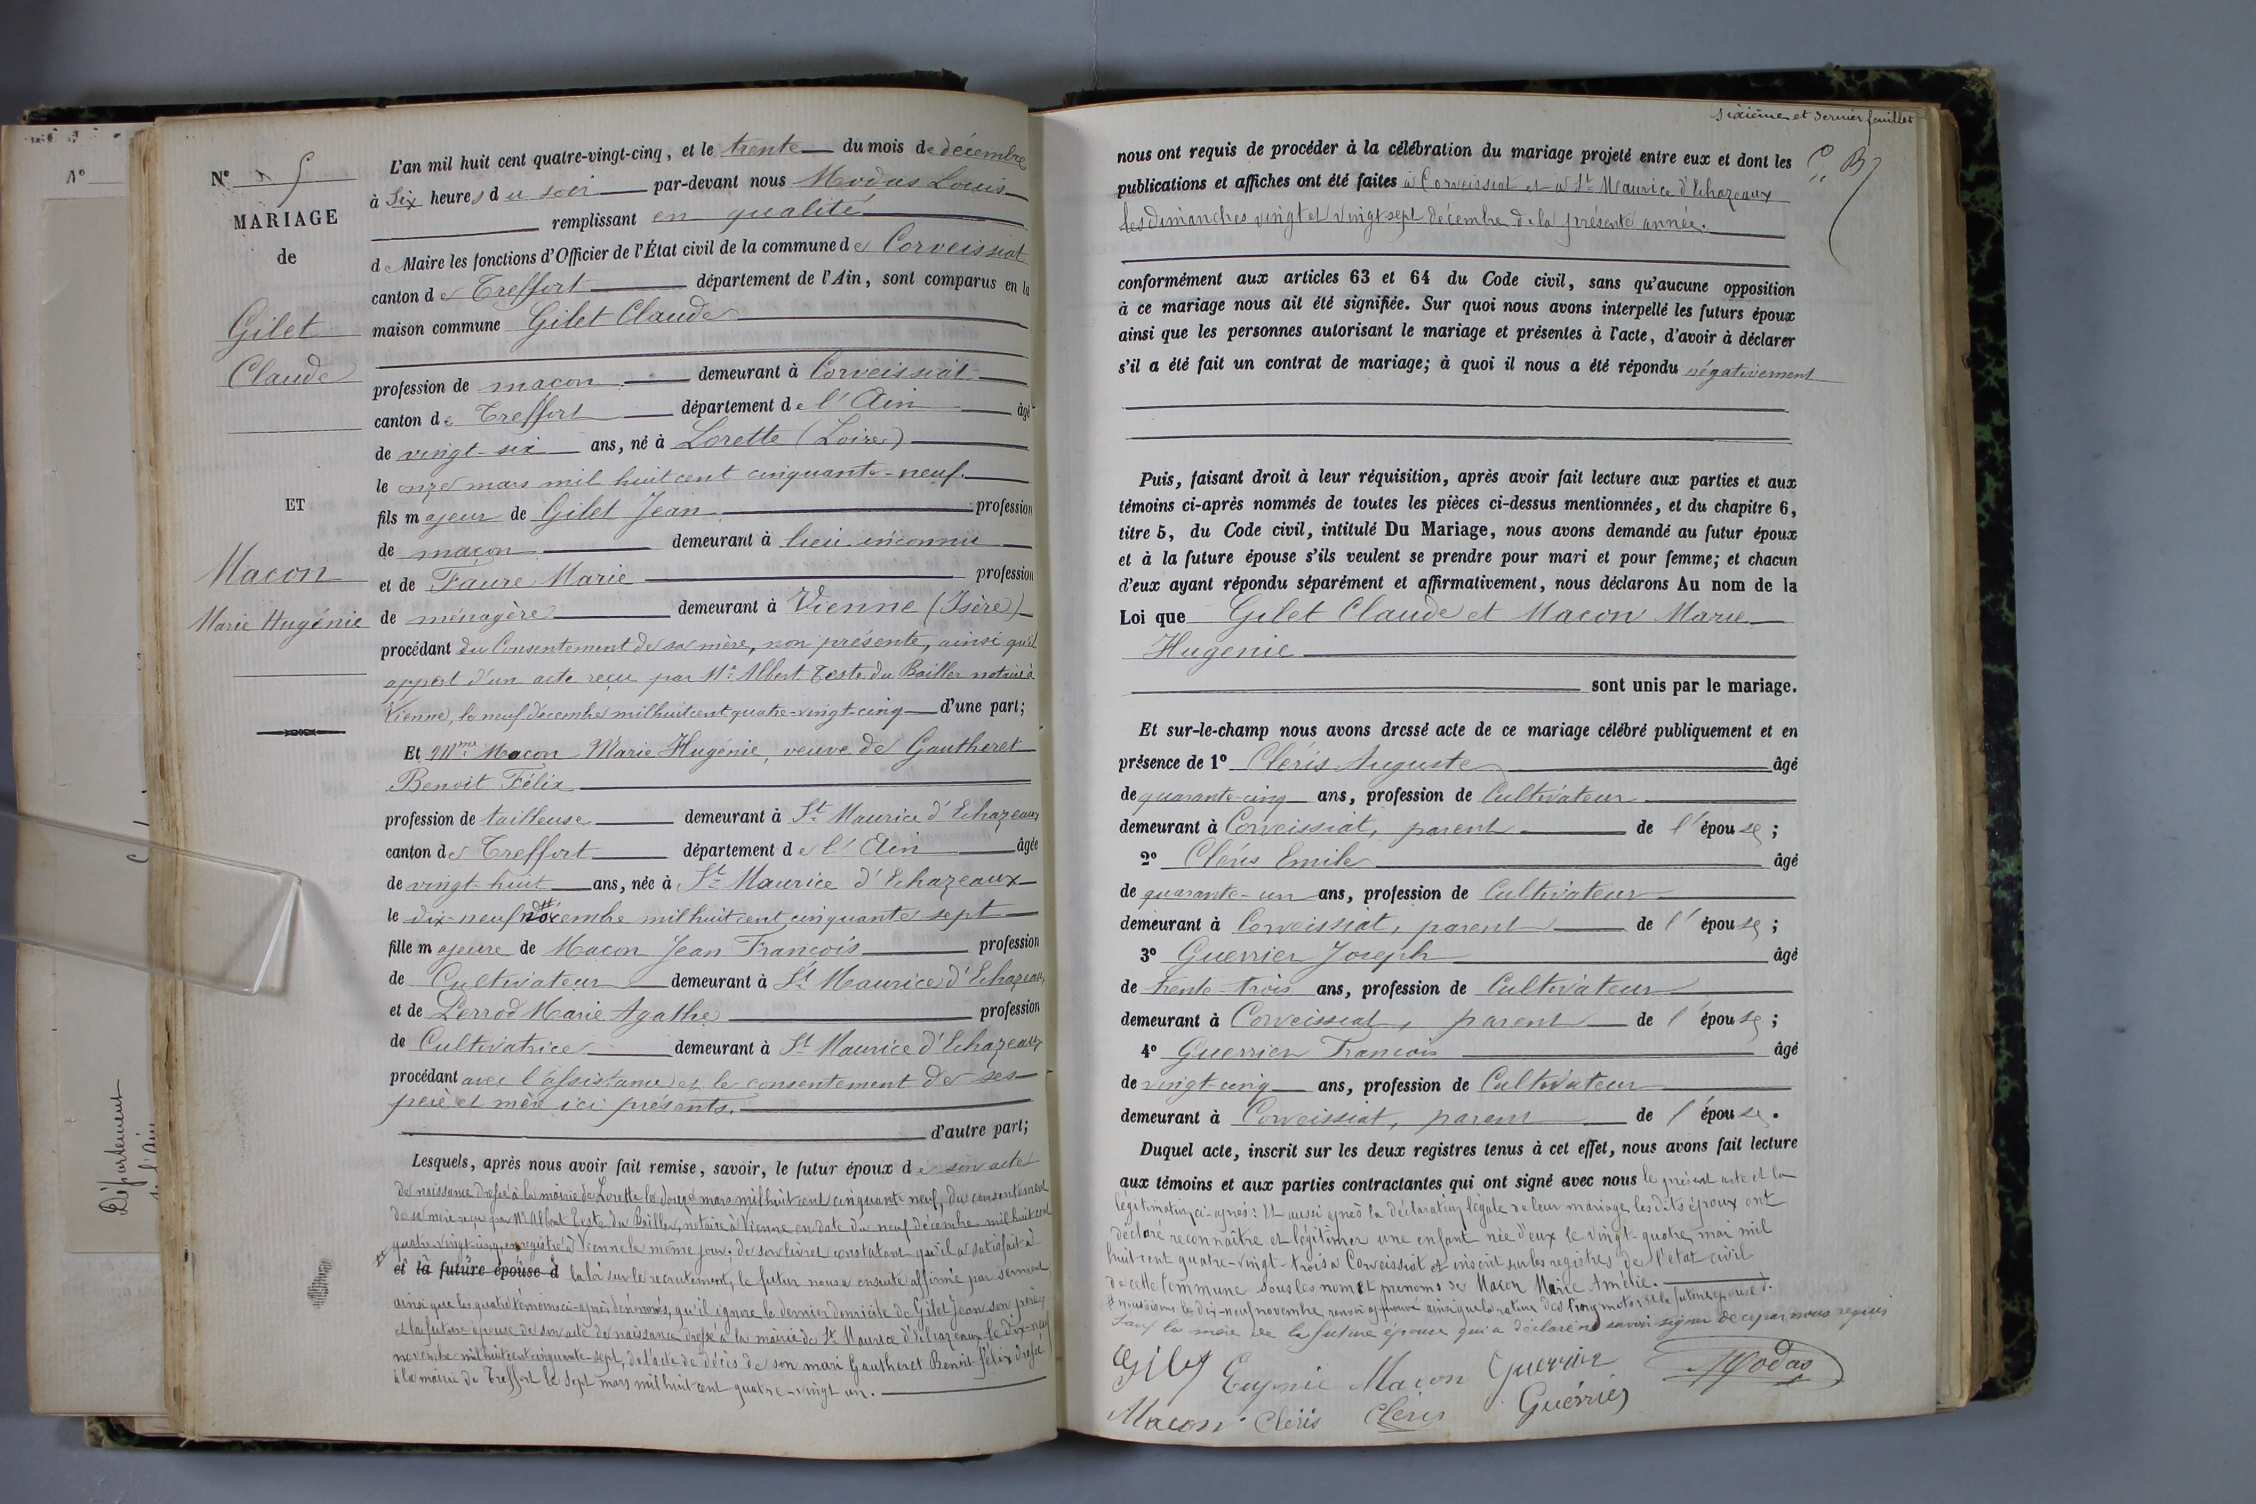 Nº 5
MARIAGE
de
Gilet
Claude
ET
Macon
Marie Hugénie
L'an mil huit cent quatre-vingt-cinq, et le trente du mois de décembre
à Six heures du soir par-devant nous Modas Louis
remplissant en qualité
de Maire les fonctions d'Officier de l'État civil de la commune de Corveissiat
canton de Treffort département de l'Ain, sont comparus en la
maison commune Gilet Claude
profession de maçon demeurant à Corveissiat
canton de Treffort département de l'Ain âgé
de vingt-six ans, né à Lorette (Loire)
le onze mars mil huit cent cinquante-neuf
fils majeur de Gilet Jean profession
de maçon demeurant à lieu inconnu
et de Faure Marie profession
de ménagère demeurant à Vienne (Isère)
procédant du Consentement de sa mère, non présente, ainsi qu'il
appert d'un acte reçu par Me Albert Teste du Bailler notaire à
Vienne, le neuf décembre mil huit cent quatre-vingt-cinq d'une part;
Et Mme Macon Marie Hugénie, veuve de Gautheret
Benoit Félix
profession de tailleuse demeurant à St Maurice d'Echazeaux
canton de Treffort département de l'Ain âgée
de vingt-huit ans, née à St Maurice d'Echazeaux
le dix-neuf décembre mil huit cent cinquante sept
fille majeure de Macon Jean François profession
de Cultivateur demeurant à St Maurice d'Echazeaux
et de Perrod Marie Agathe profession
de Cultivatrice demeurant à St Maurice d'Echazeaux
procédant avec l'assistance et le consentement de ses
père et mère ici présents.
d'autre part;
Lesquels, après nous avoir fait remise, savoir, le futur époux de son acte
de naissance dressé à la mairie de Lorette le douze mars mil huit cent cinquante neuf, du consentement
de sa mère reçu par Me Albert Teste du Bailler, notaire à Vienne en date du neuf décembre mil huit cent
quatre-vingt-cinq, enregistré à Vienne le même jour, de son livret constatant qu'il a satisfait à
et la future épouse d la loi sur le recrutement, le futur nous a ensuite affirmé par serment
ainsi que les quatre témoins ci-après dénommés, qu'il ignore le dernier domicile de Gilet Jean son père,
et la future épouse de son acte de naissance dressé à la mairie de St Maurice d'Echazeaux le dix-neuf
novembre mil huit cent cinquante-sept, de l'acte de décès de son mari Gautheret Benoit Félix dressé
à la mairie de Treffort le sept mars mil huit cent quatre-vingt un.
Sixième et dernier feuillet
nous ont requis de procéder à la célébration du mariage projeté entre eux et dont les
publications et affiches ont été faites à Corveissiat et à St Maurice d'Echazeaux
les dimanches vingt et vingt-sept décembre de la présente année.
conformément aux articles 63 et 64 du Code civil, sans qu'aucune opposition
à ce mariage nous ait été signifiée. Sur quoi nous avons interpellé les futurs époux
ainsi que les personnes autorisant le mariage et présentes à l'acte, d'avoir à déclarer
s'il a été fait un contrat de mariage; à quoi il nous a été répondu négativement
Puis, faisant droit à leur réquisition, après avoir fait lecture aux parties et aux
témoins ci-après nommés de toutes les pièces ci-dessus mentionnées, et du chapitre 6,
titre 5, du Code civil, intitulé Du Mariage, nous avons demandé au futur époux
et à la future épouse s'ils veulent se prendre pour mari et pour femme; et chacun
d'eux ayant répondu séparément et affirmativement, nous déclarons Au nom de la
Loi que Gilet Claude et Macon Marie
Hugenie
sont unis par le mariage.
Et sur-le-champ nous avons dressé acte de ce mariage célébré publiquement et en
présence de 1º Cléris Auguste âgé
de quarante-cinq ans, profession de Cultivateur
demeurant à Corveissiat, parent de l'épouse;
2º Cléris Emile âgé
de quarante-un ans, profession de Cultivateur
demeurant à Corveissiat, parent de l'épouse;
3º Guerrier Joseph âgé
de trente-trois ans, profession de Cultivateur
demeurant à Corveissiat, parent de l'épouse;
4º Guerrier François âgé
de vingt-cinq ans, profession de Cultivateur
demeurant à Corveissiat, parent de l'épouse.
Duquel acte, inscrit sur les deux registres tenus à cet effet, nous avons fait lecture
aux témoins et aux parties contractantes qui ont signé avec nous le présent acte et la
légitimation ci-après: Et aussi après la déclaration légale de leur mariage, les dits époux ont
déclaré reconnaître et légitimer une enfant née d'eux le vingt-quatre mai mil
huit cent quatre-vingt-trois à Corveissiat et inscrit sur les registres de l'état civil
de cette Commune sous les nom et prénoms de Macon Marie Amélie.
nous disons le dix-neuf novembre, renvoi approuvé ainsi que la rature des cinq mots: et la future épouse d.
Sauf la mère de la future épouse qui a déclaré ne savoir signer de ce par nous requis
Gilet Eugénie Macon Guerrier Modas
Macon Cléris Cléris Guérrier
Département
de l'Ain